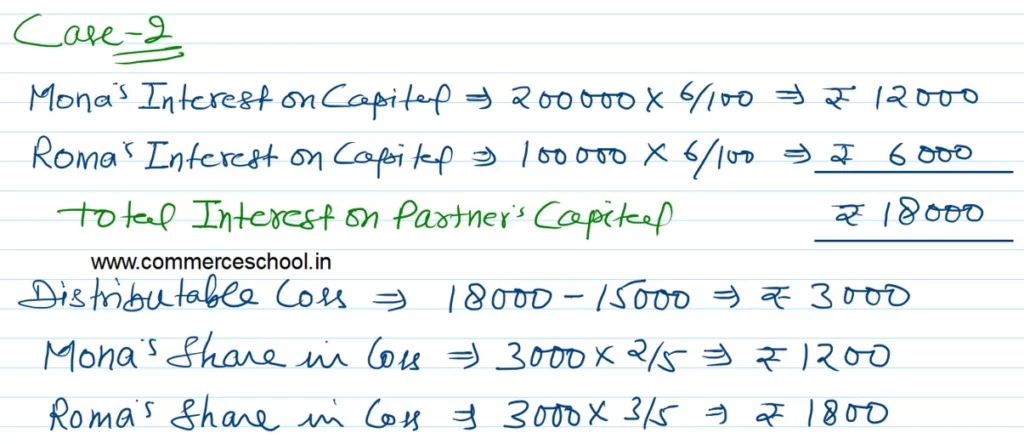 Case-2
Mona's Interest on Capital ⇒ 200000 × 6/100 ⇒ ₹ 12000
Roma's Interest on Capital ⇒ 100000 × 6/100 ⇒ ₹ 6000
Total Interest on Partner's Capital ₹ 18000
www.commerceschool.in
Distributable Loss ⇒ 18000 - 15000 ⇒ ₹ 3000
Mona's Share in Loss ⇒ 3000 × 2/5 ⇒ ₹ 1200
Roma's Share in Loss ⇒ 3000 × 3/5 ⇒ ₹ 1800